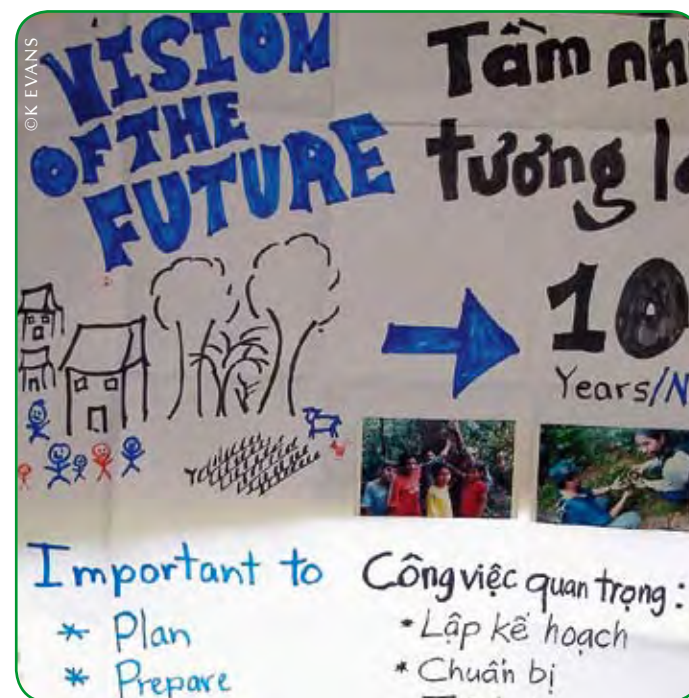 ©K EVANS
VISION
OF THE
FUTURE
Tầm nh
tương la
10
Years/N
Important to
* Plan
* Prepare
Công việc quan trọng:
* Lập kế hoạch
* Chuẩn bị